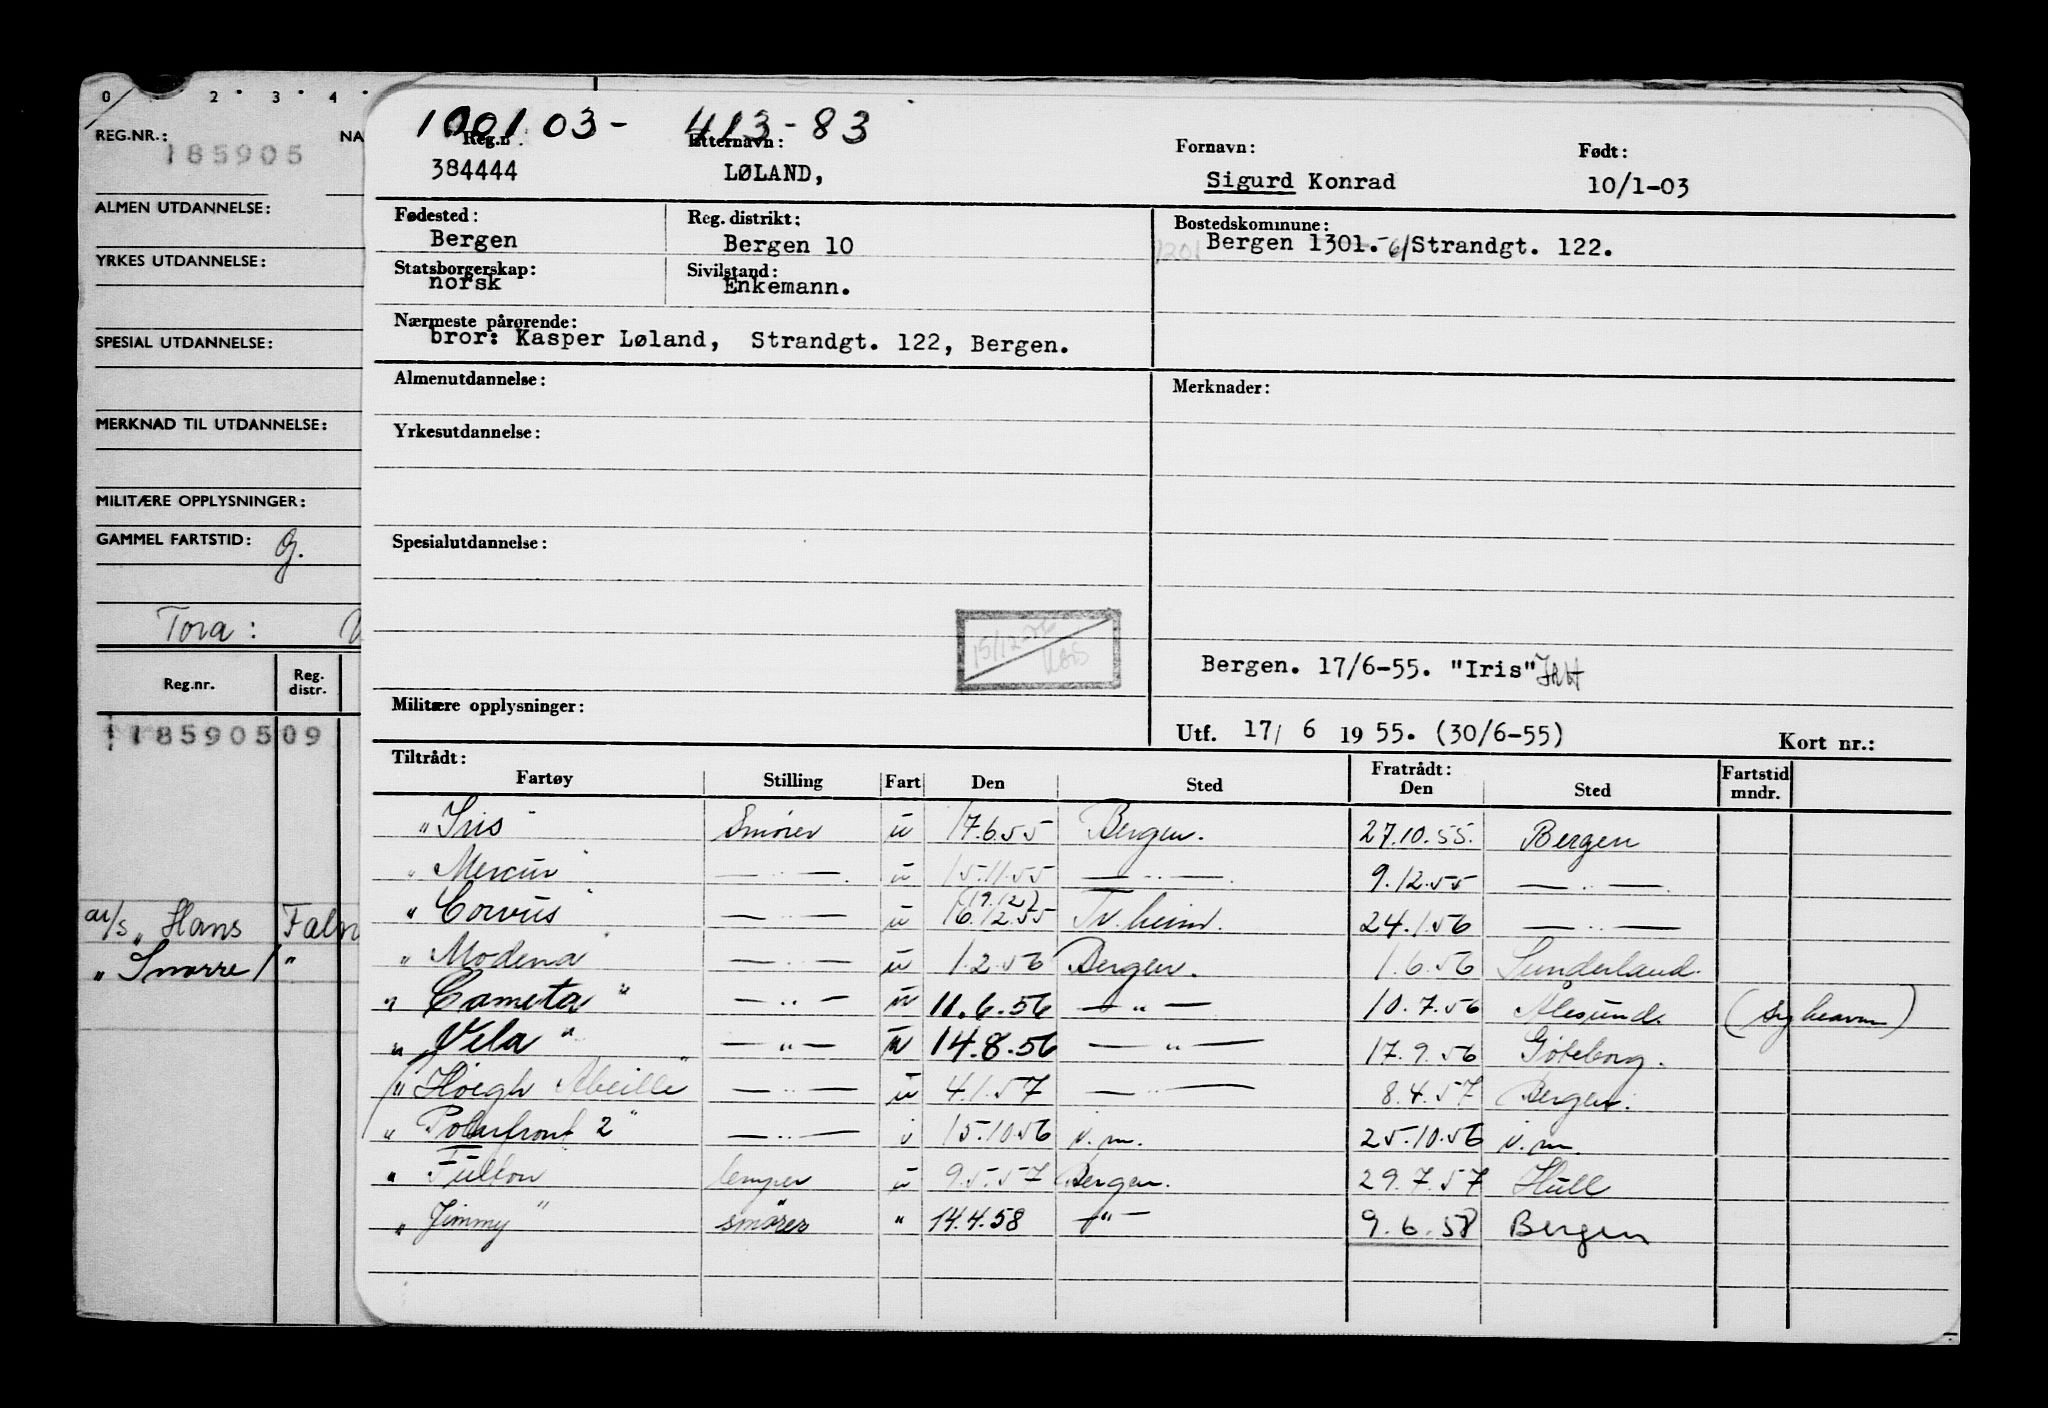 0 2 3 4
REG.NR.: NA
185905
ALMEN UTDANNELSE:
YRKES UTDANNELSE:
SPESIAL UTDANNELSE:
MERKNAD TIL UTDANNELSE:
MILITÆRE OPPLYSNINGER:
GAMMEL FARTSTID: G.
Tora:
Reg.nr. Reg. distr.
118590509
Hans Falm
" Snorre / "
100103- 413-83
Reg.n. Etternavn: Fornavn: Født:
384444 LØLAND, Sigurd Konrad 10/1-03
Fødested: Reg. distrikt: Bostedskommune:
Bergen Bergen 10 1201 Bergen 1301.-6/Strandgt. 122.
Statsborgerskap: Sivilstand:
norsk Enkemann.
Nærmeste pårørende:
bror: Kasper Løland, Strandgt. 122, Bergen.
Almenutdannelse: Merknader:
Yrkesutdannelse:
Spesialutdannelse:
15/12-56
Bergen. 17/6-55. "Iris"
Militære opplysninger:
Utf. 17/ 6 19 55. (30/6-55) Kort nr.:
Tiltrådt: Fratrådt: Fartstid
Fartøy Stilling Fart Den Sted Den Sted mndr.
"Iris" Smører u 17.6.55 Bergen. 27.10.55. Bergen
"Mercur" — " — u 15.11.55 — " — 9.12.55 — " —
(19.12)
"Corvus" — " — u 16.12.55 Tr.heim. 24.1.56 — " —
"Modena" — " — u 1.2.56 Bergen. 1.6.56 Sunderland.
"Cometa" — " — u 11.6.56 — " — 10.7.56 Ålesund.
"Vela" — " — u 14.8.56 — " — 17.9.56 Göteborg.
"Höegh Abeille" — " — u 4.1.57 — " — 8.4.57 Bergen.
"Polarfront 2" — " — i 15.10.56 i.m. 25.10.56 i.m.
"Fulton lemper u 9.5.57 Bergen. 29.7.57 Hull
"Jimmy" smører " 14.4.58 — " — 9.6.58 Bergen